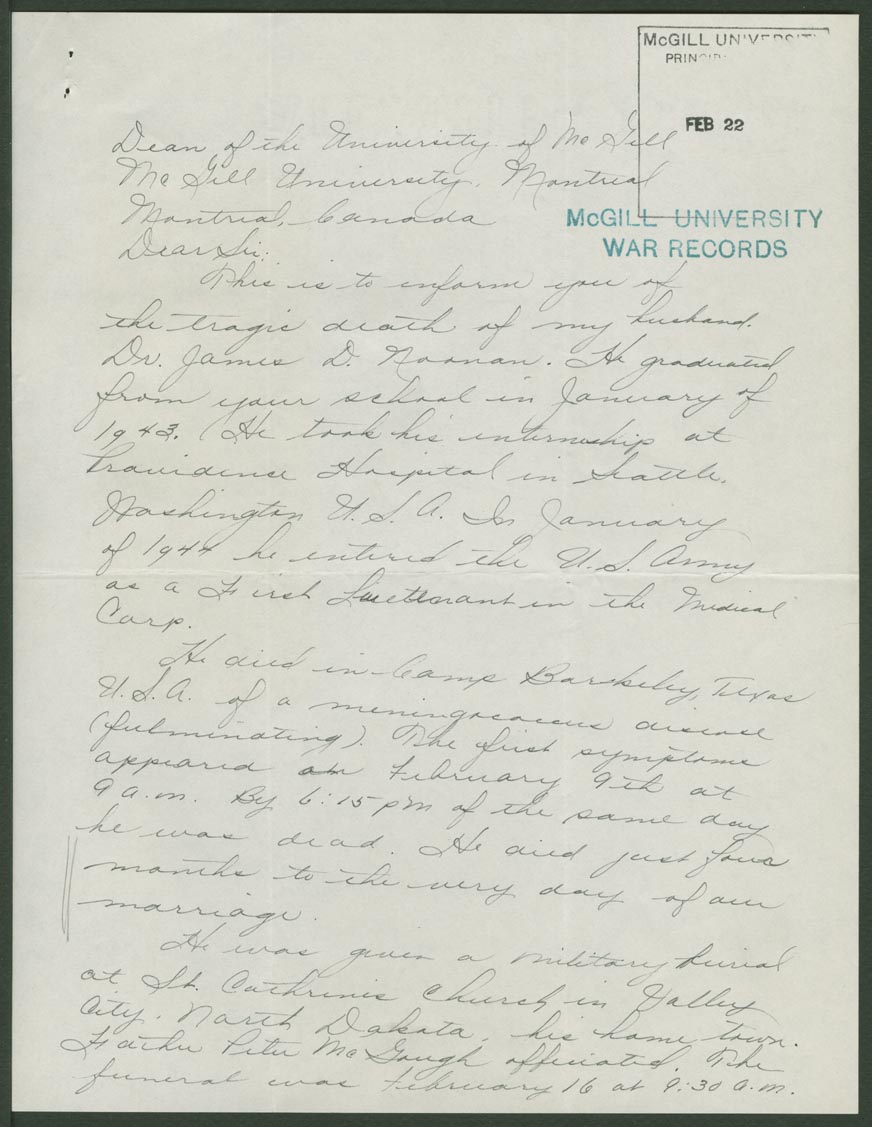 McGILL UNIVERSITY
FEB 22
McGILL UNIVERSITY
WAR RECORDS
Dean of the University of McGill
McGill University, Montreal
Montreal, Canada
Dear Sir:
This is to inform you of
the tragic death of my husband.
Dr. James D. Noonan. He graduated
from your school in January of
1943. He took his internship at
Providence Hospital in Seattle,
Washington U.S.A. In January
of 1944 he entered the U.S. Army
as a First Lieutenant in the Medical
Corp.
He died in Camp Barkeley, Texas
U.S.A. of a meningococcus disease
(fulminating). The first symptoms
appeared on February 9th at
9 a.m. By 6:15 pm of the same day
he was dead. He died just four
months to the very day of our
marriage.
He was given a military burial
at St. Cathrine's Church in Valley
City, North Dakota, his home town.
Father Peter McGough officiated. The
funeral was February 16 at 9:30 a.m.